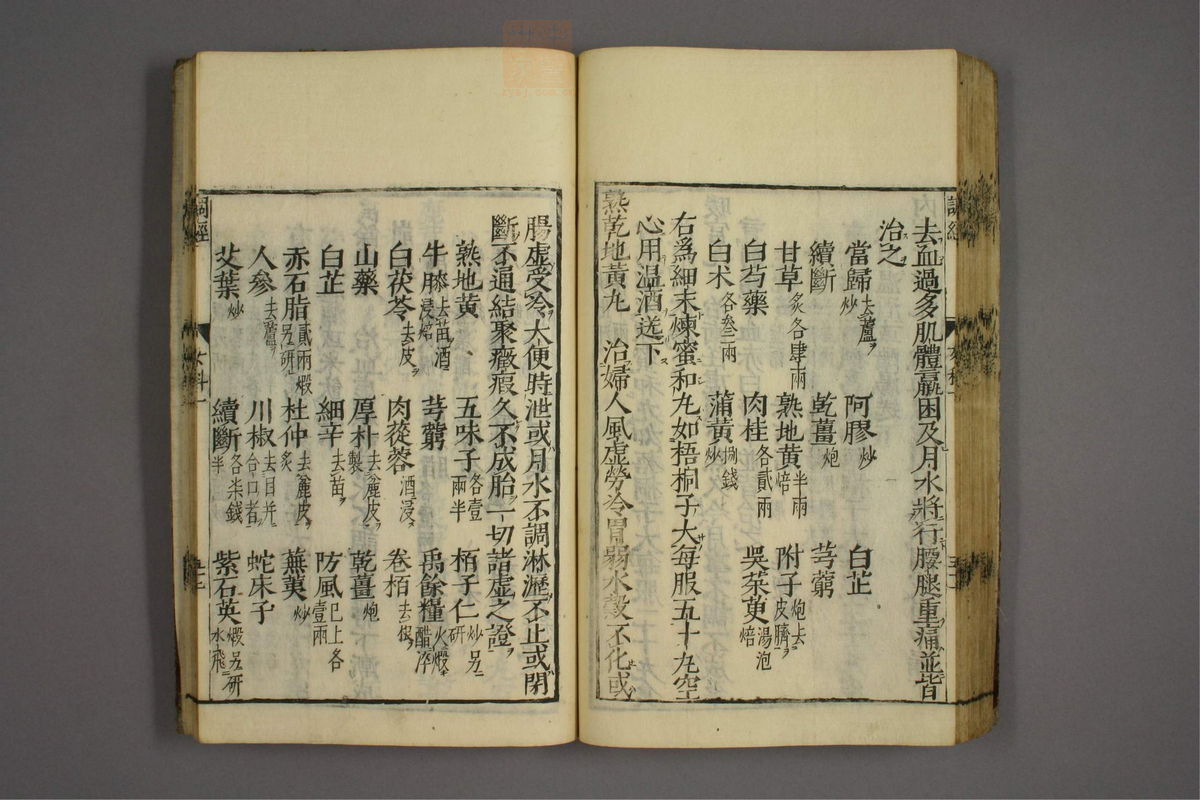 去血過多肌體羸困及月水將行腰腿重痛並皆
治之
當歸去蘆炒 阿膠炒 白芷
續斷 乾薑炮 芎藭
甘草炙各肆兩 熟地黄半兩焙 附子炮去皮臍
白芍藥 肉桂各貳兩 吳茱萸湯泡焙
白术各叁兩 蒲黃捌錢炒
右爲細末煉蜜和丸如梧桐子大每服五十丸空
心用温酒送下
熟乾地黄丸 治婦人風虛勞冷胃弱水穀不化或
腸虛受冷大便時泄或月水不調淋瀝不止或閉
斷不通結聚癥瘕久不成胎一切諸虛之證
熟地黄 五味子各壹兩半 栢子仁炒另研
牛膝去苗酒浸焙 芎藭 禹餘糧火煅醋淬
白茯苓去皮 肉蓯蓉酒浸 卷栢去根
山藥 厚朴去麄皮製 乾薑炮
白芷 細辛去苗 防風已上各壹兩
赤石脂貳兩煅另研 杜仲去麄皮炙 蕪荑炒
人參去蘆 川椒去目并合口者 蛇床子
艾葉炒 續斷各柒錢半 紫石英煅另研水飛
調經
女科一